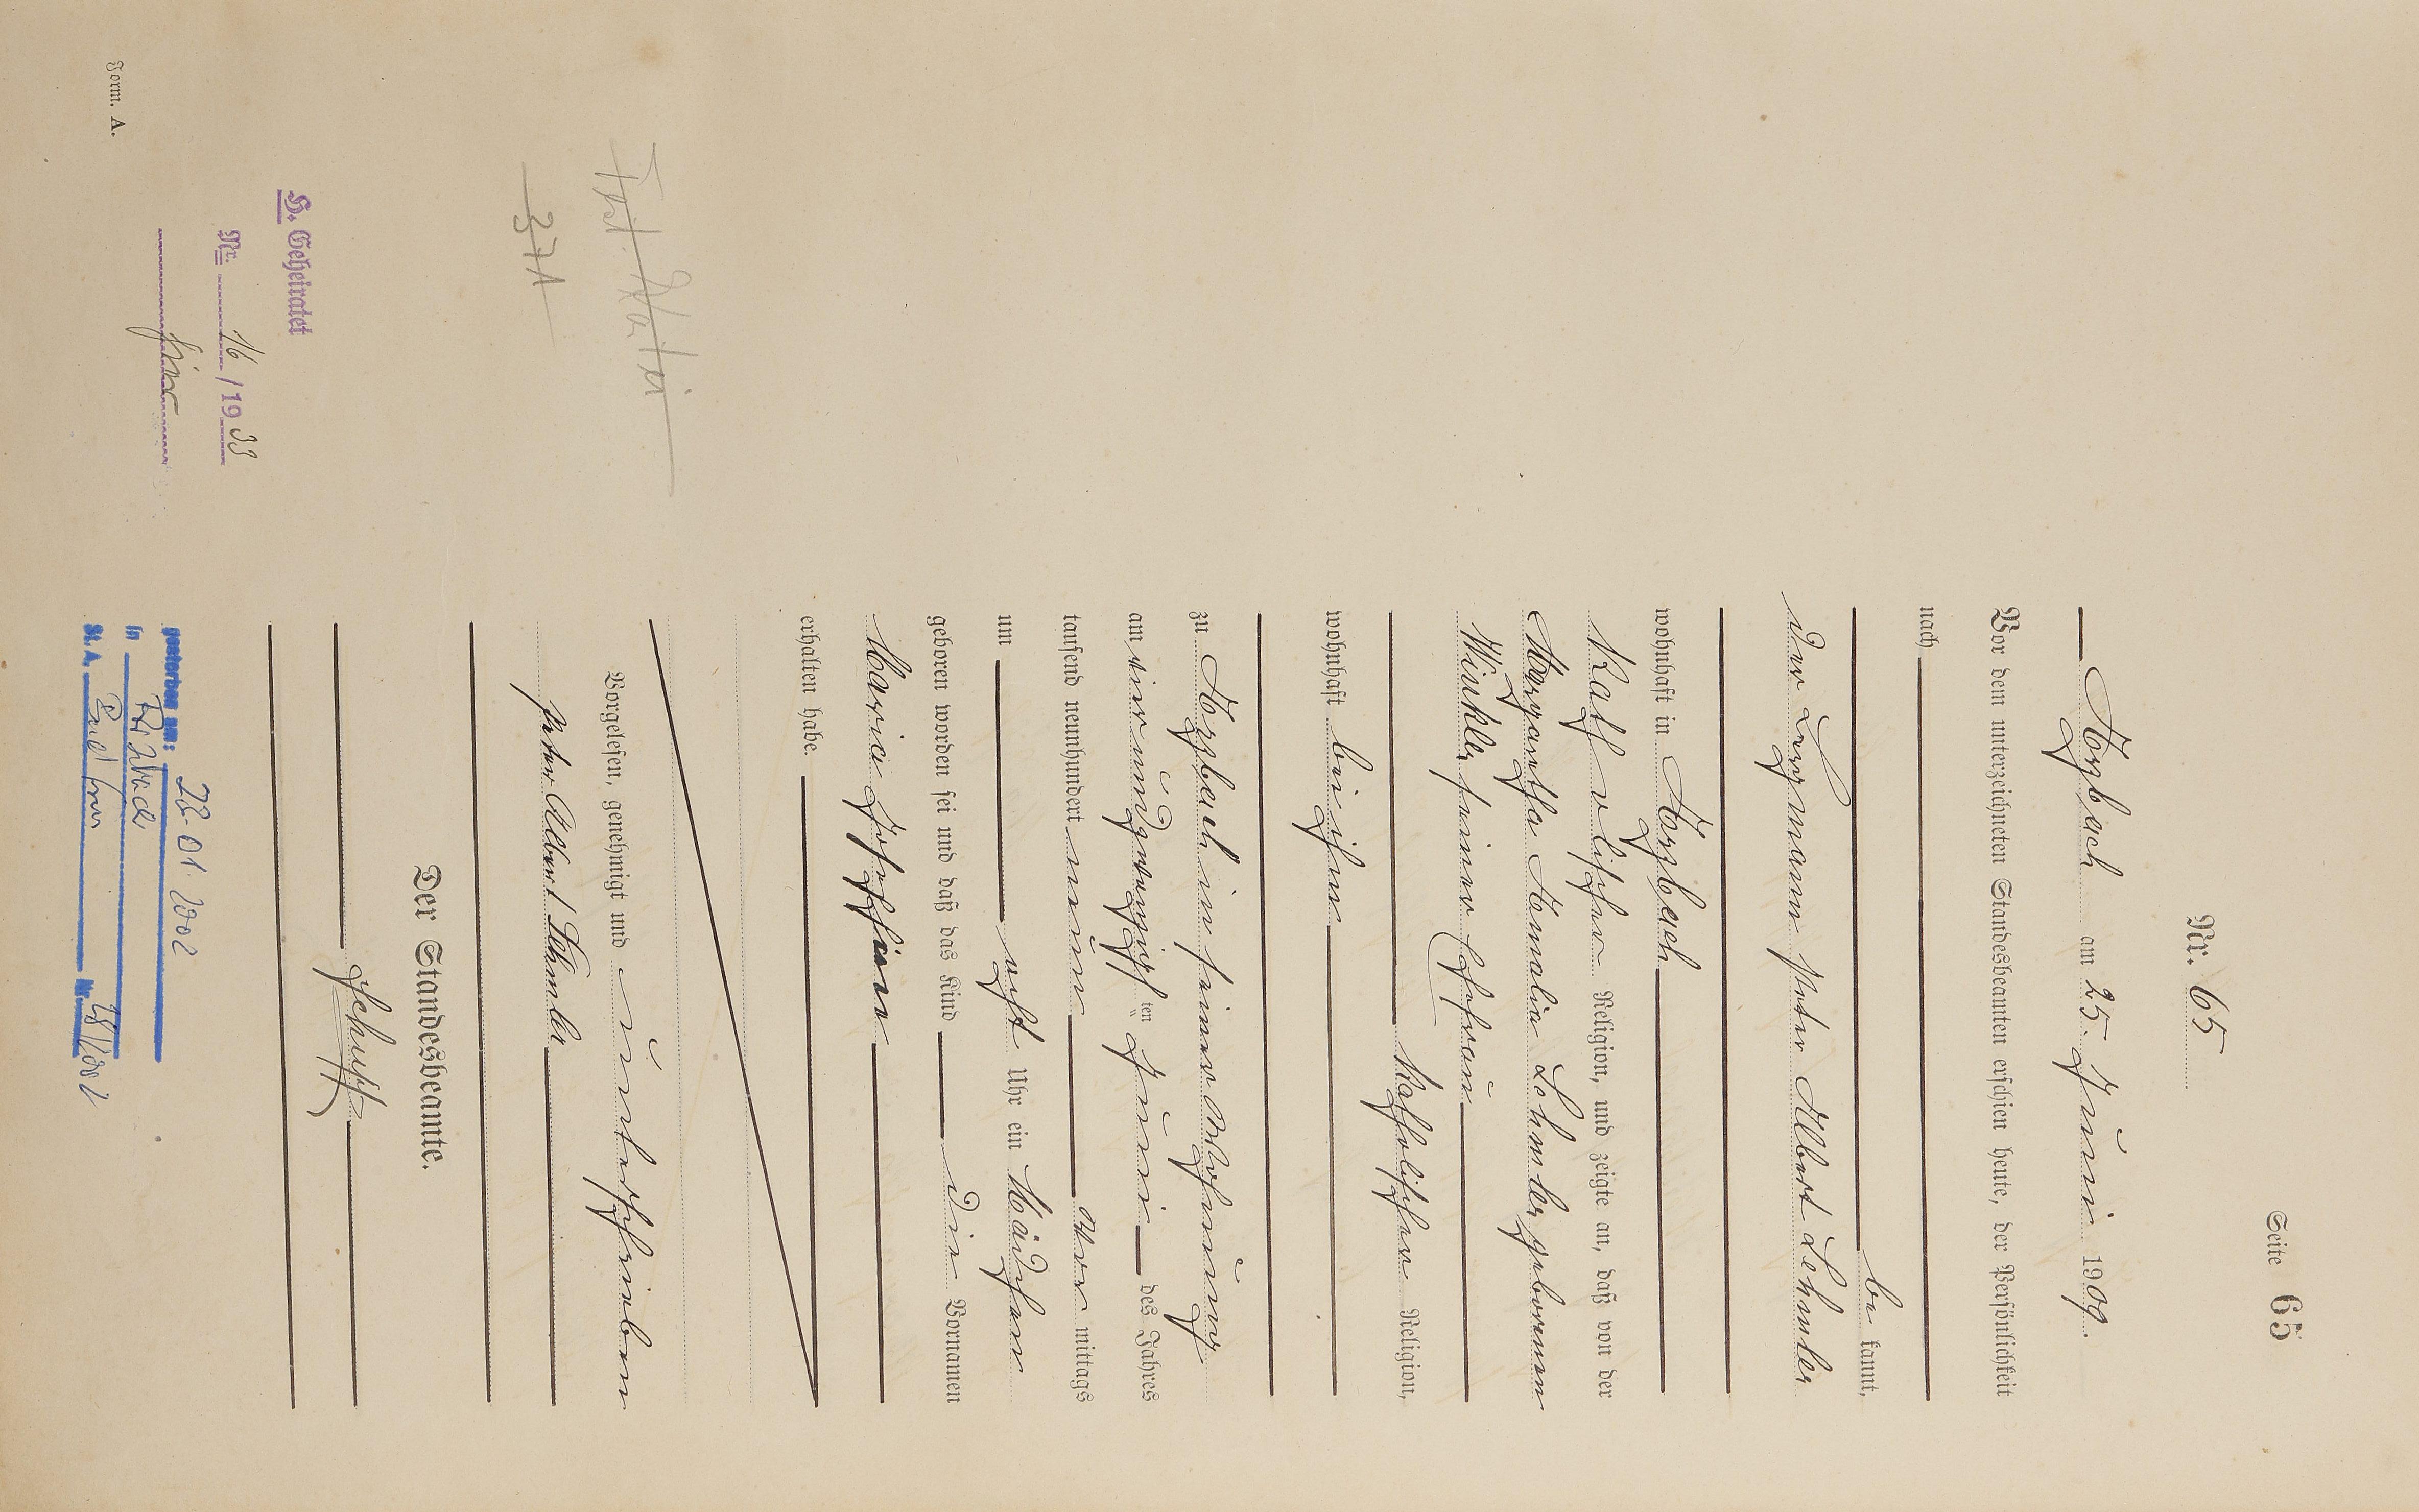 Seite 65
Nr. 65
Horbach am 25 Juni 1909.
Vor dem unterzeichneten Standesbeamten erschien heute, der Persönlichkeit
nach
be kannt,
der Bergmann Peter Albert Lehmler
wohnhaft in Horbach
Katholischer Religion, und zeigte an, daß von der
Margaretha Amalia Lehmler geborenen
Winkler, seiner Ehefrau
Katholischer Religion,
wohnhaft bei ihm
zu Horbach in seiner Wohnung
am vierundzwanzigsten Juni des Jahres
tausend neunhundert neun Vor mittags
um acht Uhr ein Mädchen
geboren worden sei und daß das Kind die Vornamen
Maria Josephine
erhalten habe.
Vorgelesen, genehmigt und unterschrieben
Peter Albert Lehmler
Der Standesbeamte.
Test. Kartei
371
H. Geheiratet
Nr. 16/1933
hier
Form. A.
gestorben am: 28.01.2002
in
St. A. Nr.